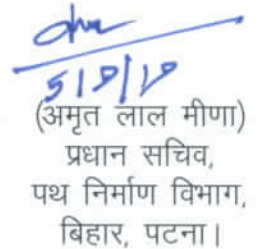 5/9/19
(अमृत लाल मीणा)
प्रधान सचिव,
पथ निर्माण विभाग,
बिहार, पटना।